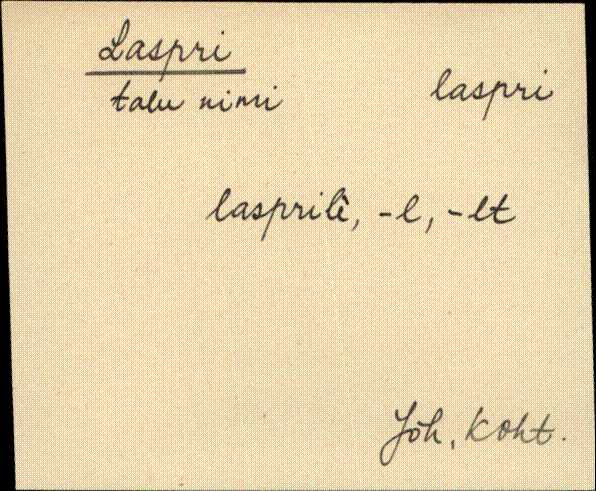 Laspri
talu nimi laspri
lasprilè, -l, -lt
Jõh, Koht.